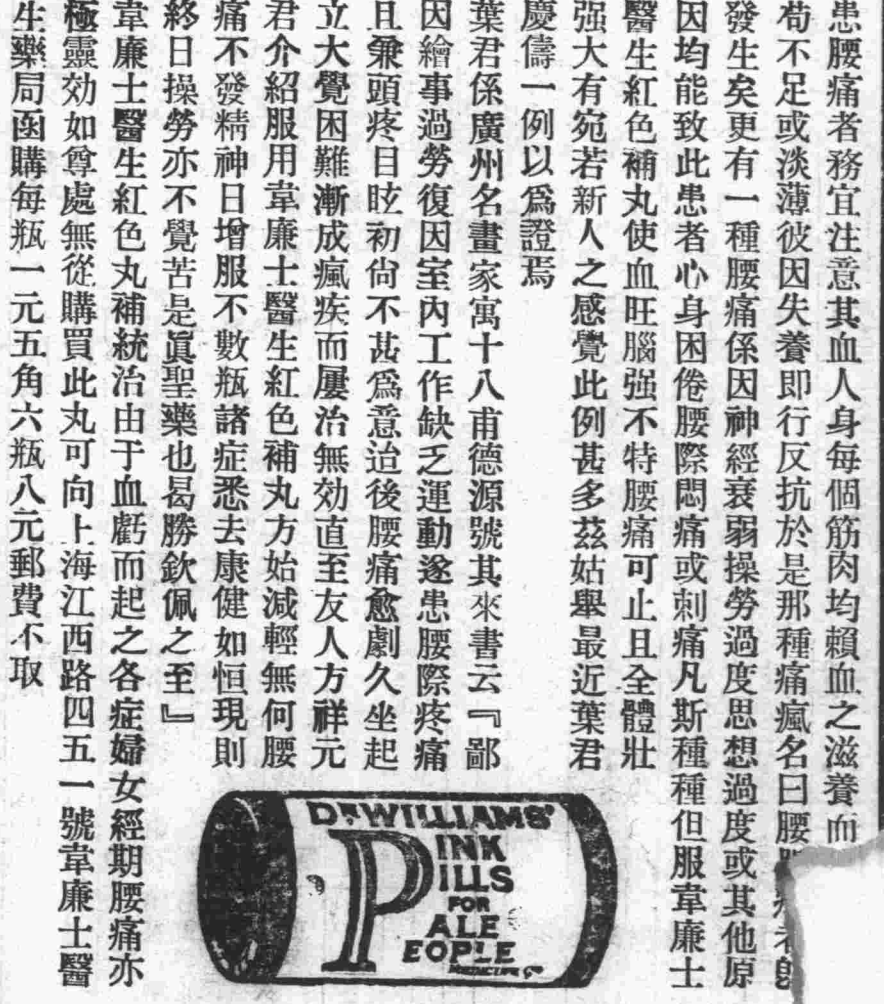 患腰痛者務宜注意其血人身每個筋肉均賴血之滋養而
苟不足或淡薄彼因失養即行反抗於是那種痛瘋名曰腰
發生矣更有一種腰痛係因神經衰弱操勞過度思想過度或其他原
因均能致此患者心身困倦腰際悶痛或刺痛凡斯種種但服韋廉士
醫生紅色補丸使血旺腦强不特腰痛可止且全體壯
强大有宛若新人之感覺此例甚多茲姑舉最近葉君
慶儔一例以爲證焉
葉君係廣州名畫家寓十八甫德源號其來書云『鄙
因繪事過勞復因室內工作缺乏運動遂患腰際疼痛
且兼頭疼目眩初尙不甚爲意迨後腰痛愈劇久坐起
立大覺困難漸成瘋疾而屢治無効直至友人方祥元
君介紹服用韋廉士醫生紅色補丸方始減輕無何腰
痛不發精神日增服不數瓶諸症悉去康健如恒現則
終日操勞亦不覺苦是眞聖藥也曷勝欽佩之至』
韋廉士醫生紅色丸補統治由于血虧而起之各症婦女經期腰痛亦
極靈効如尊處無從購買此丸可向上海江西路四五一號韋廉士醫
生藥局函購每瓶一元五角六瓶八元郵費不取
DR WILLIAMS'
PINK
PILLS
FOR
PALE
PEOPLE
MEDICINE CO